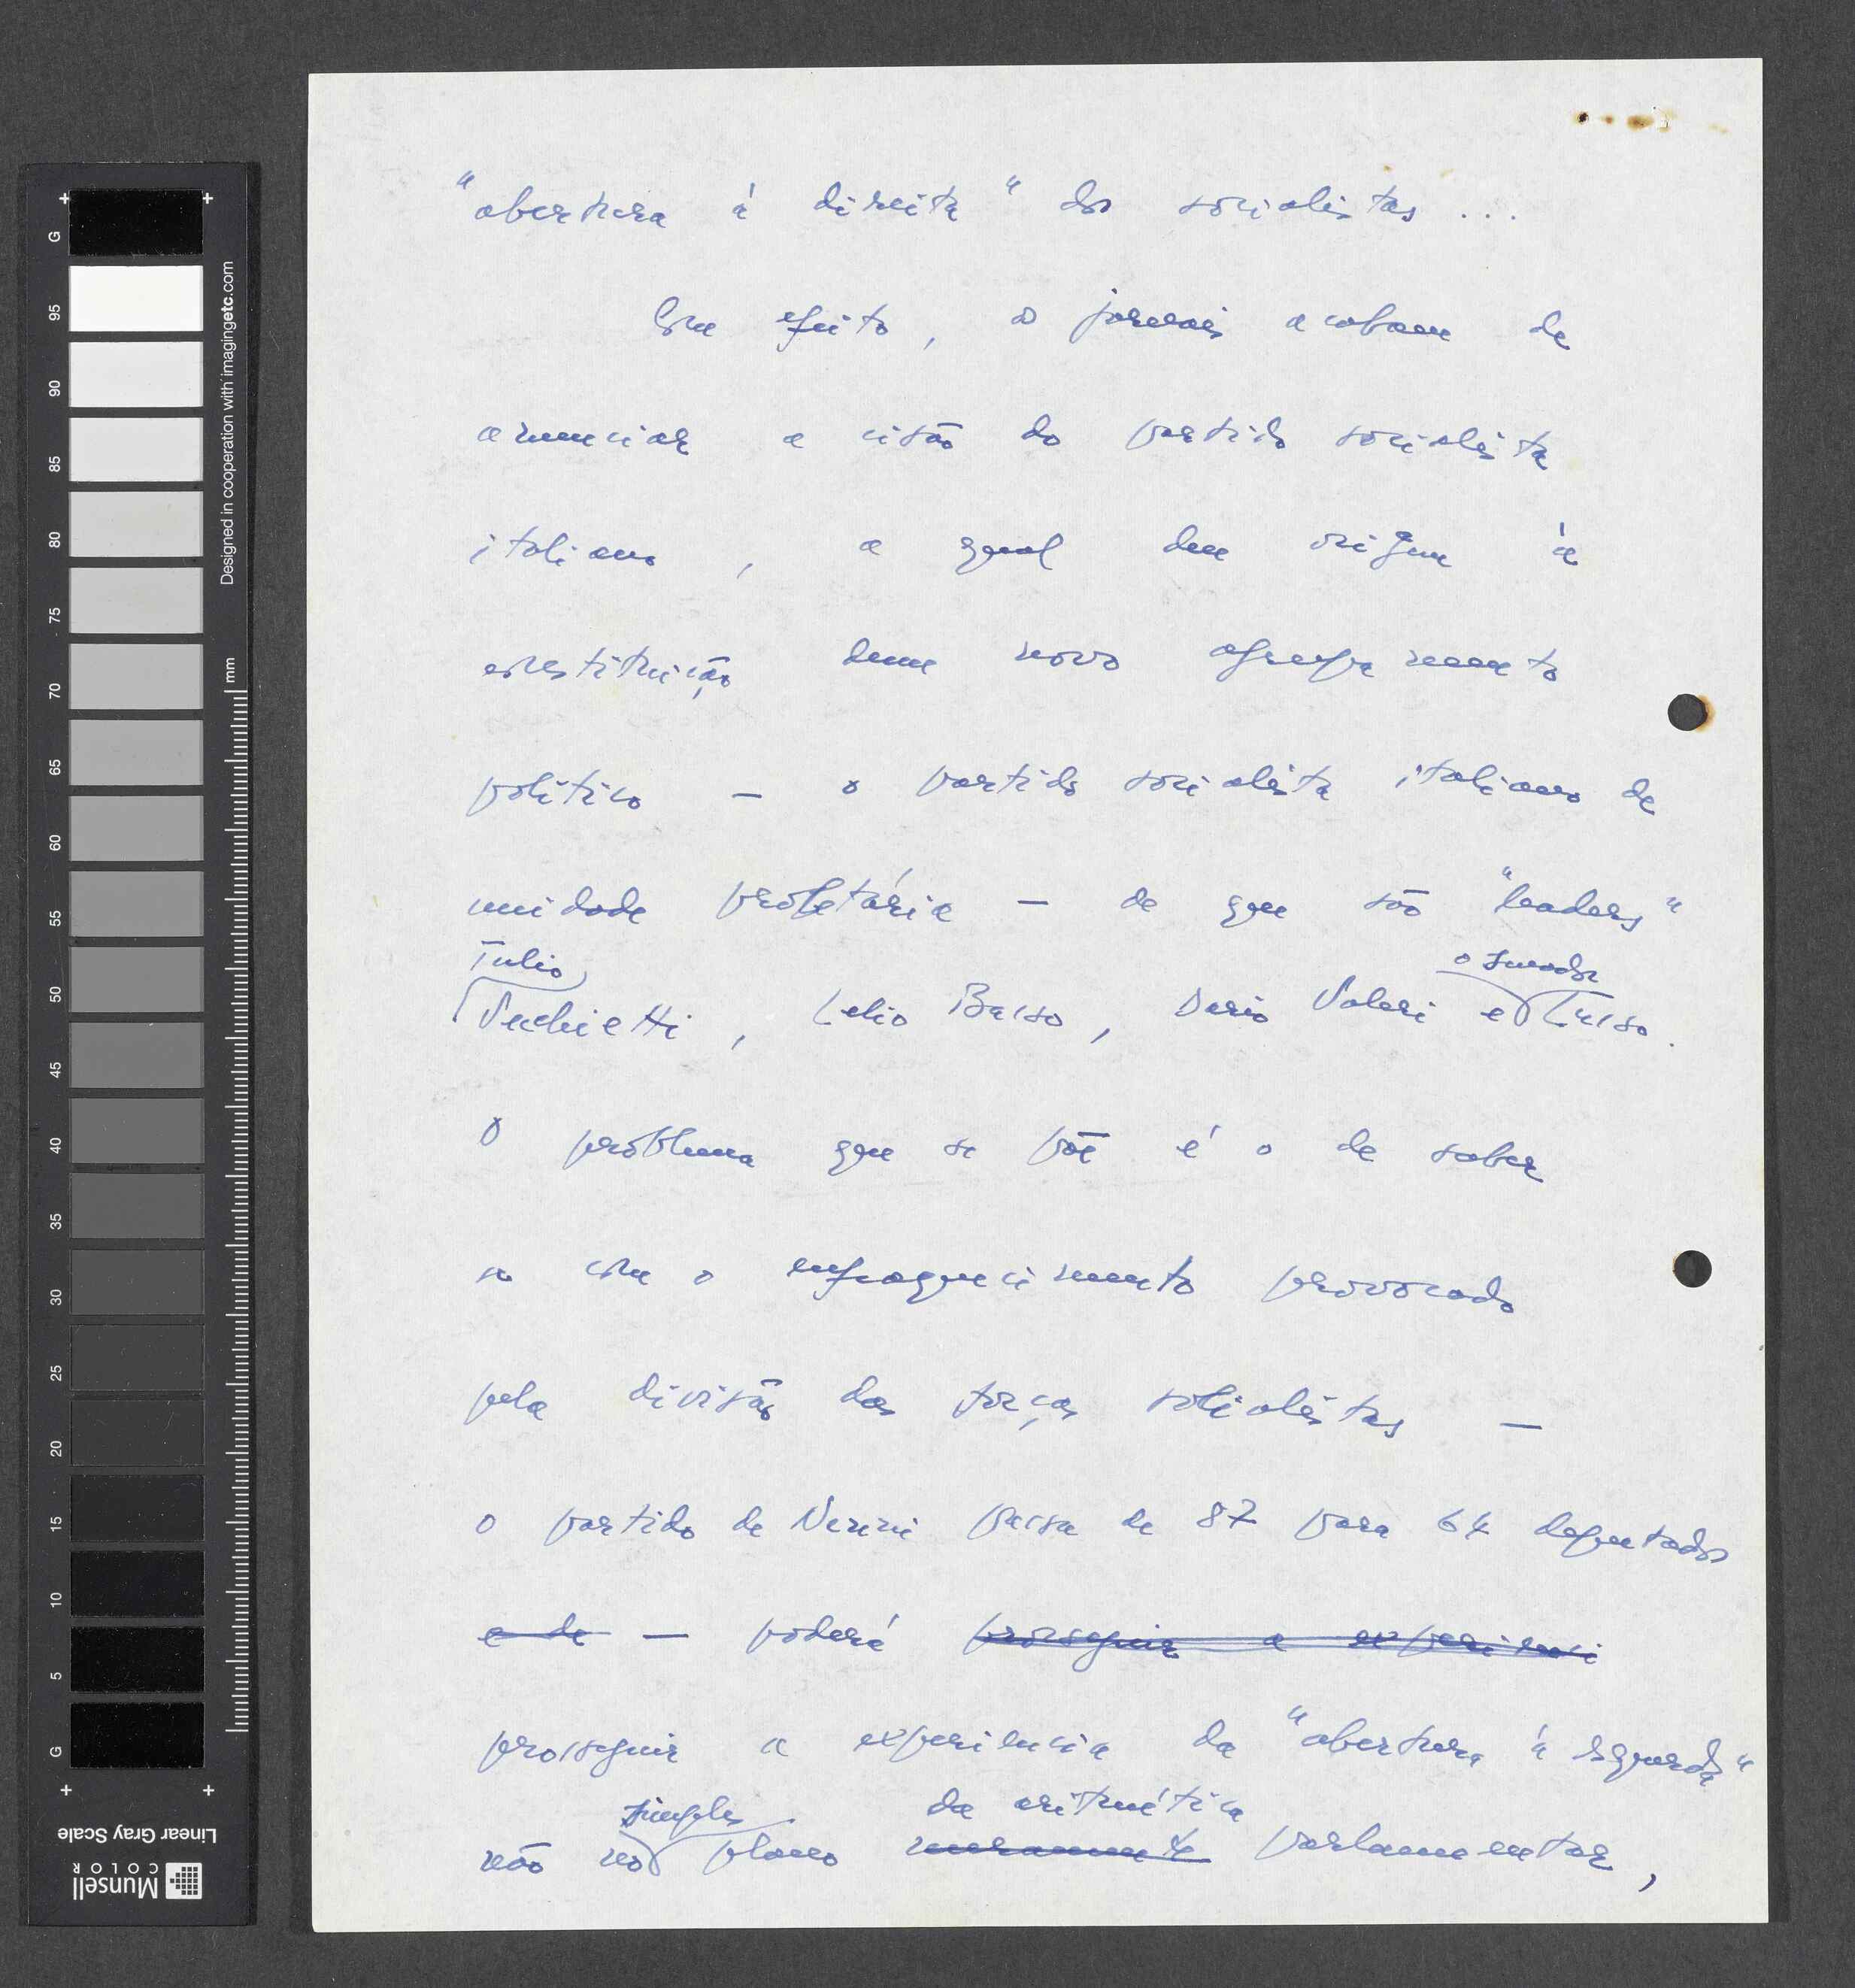 "abertura à direita" dos socialistas ...
Com efeito, os jornais acabam de
anunciar a cisão do partido socialista
italiano, a qual deu origem à
constituição dum novo agrupamento
político — o partido socialista italiano de
unidade proletária — de que são "leaders"
Tulio
Vecchietti, Lelio Basso, Dario Valori e Lusso.
O problema que se põe é o de saber
se com o enfraquecimento provocado
pela divisão das forças socialistas —
o partido de Nenni passa de 87 para 64 deputados
e de — poderá prosseguir a experienci
prosseguir a experiencia da "abertura à esquerda"
simples da aritmética
não no plano meramente parlamentar,
G 95 90 85 80 75 70 65 60 55 50 45 40 35 30 25 20 15 10 5 G
Designed in cooperation with imagingetc.com
mm
Linear Gray Scale
Munsell
COLOR